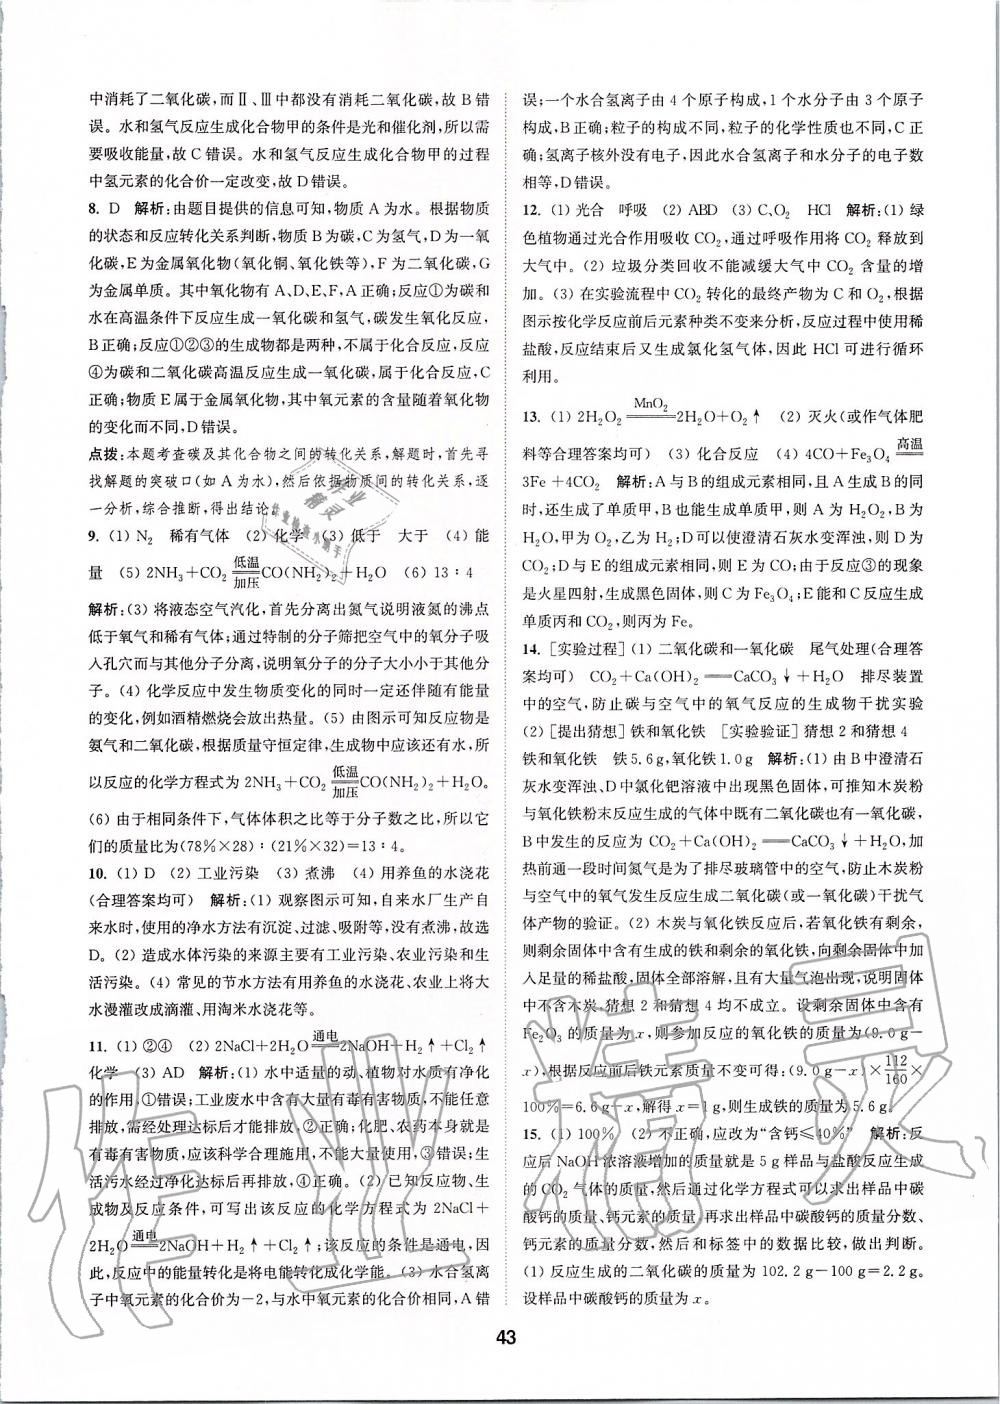 中消耗了二氧化碳,而Ⅱ、Ⅲ中都没有消耗二氧化碳,故B错
误。水和氢气反应生成化合物甲的条件是光和催化剂,所以需
要吸收能量,故C错误。水和氢气反应生成化合物甲的过程
中氢元素的化合价一定改变,故D错误。
8. D 解析:由题目提供的信息可知,物质A为水。根据物质
的状态和反应转化关系判断,物质B为碳,C为氢气,D为一氧
化碳,E为金属氧化物(氧化铜、氧化铁等),F为二氧化碳,G
为金属单质。其中氧化物有A、D、E、F,A正确;反应①为碳和
水在高温条件下反应生成一氧化碳和氢气,碳发生氧化反应,
B正确;反应①②③的生成物都是两种,不属于化合反应,反应
④为碳和二氧化碳高温反应生成一氧化碳,属于化合反应,C
正确;物质E属于金属氧化物,其中氧元素的含量随着氧化物
的变化而不同,D错误。
点拨:本题考查碳及其化合物之间的转化关系,解题时,首先寻
找解题的突破口(如A为水),然后依据物质间的转化关系,逐
一分析,综合推断,得出结论。
9. (1) N₂ 稀有气体 (2) 化学 (3) 低于 大于 (4) 能
量 (5) 2NH₃+CO₂ 低温 加压 CO(NH₂)₂+H₂O (6) 13∶4
解析:(3) 将液态空气汽化,首先分离出氮气说明液氮的沸点
低于氧气和稀有气体;通过特制的分子筛把空气中的氧分子吸
入孔穴而与其他分子分离,说明氧分子的分子大小小于其他分
子。(4) 化学反应中发生物质变化的同时一定还伴随有能量
的变化,例如酒精燃烧会放出热量。(5) 由图示可知反应物是
氨气和二氧化碳,根据质量守恒定律,生成物中应该还有水,所
以反应的化学方程式为 2NH₃+CO₂ 低温 加压 CO(NH₂)₂+H₂O。
(6) 由于相同条件下,气体体积之比等于分子数之比,所以它
们的质量比为(78%×28)∶(21%×32)=13∶4。
10. (1) D (2) 工业污染 (3) 煮沸 (4) 用养鱼的水浇花
(合理答案均可) 解析:(1) 观察图示可知,自来水厂生产自
来水时,使用的净水方法有沉淀、过滤、吸附等,没有煮沸,故选
D。(2) 造成水体污染的来源主要有工业污染、农业污染和生
活污染。(4) 常见的节水方法有用养鱼的水浇花、农业上将大
水漫灌改成滴灌、用淘米水浇花等。
11. (1) ②④ (2) 2NaCl+2H₂O 通电 2NaOH+H₂↑+Cl₂↑
化学 (3) AD 解析:(1) 水中适量的动、植物对水质有净化
的作用,①错误;工业废水中含有大量有毒有害物质,不能任意
排放,需经处理达标后才能排放,②正确;化肥、农药本身就是
有毒有害物质,应该科学合理施用,不能大量使用,③错误;生
活污水经过净化达标后再排放,④正确。(2) 已知反应物、生
成物及反应条件,可写出该反应的化学方程式为 2NaCl+
2H₂O 通电 2NaOH+H₂↑+Cl₂↑;该反应的条件是通电,因
此,反应中的能量转化是将电能转化成化学能。(3) 水合氢离
子中氧元素的化合价为-2,与水中氧元素的化合价相同,A错
误;一个水合氢离子由4个原子构成,1个水分子由3个原子
构成,B正确;粒子的构成不同,粒子的化学性质也不同,C正
确;氢离子核外没有电子,因此水合氢离子和水分子的电子数
相等,D错误。
12. (1) 光合 呼吸 (2) ABD (3) C、O₂ HCl 解析:(1) 绿
色植物通过光合作用吸收CO₂,通过呼吸作用将CO₂释放到
大气中。(2) 垃圾分类回收不能减缓大气中CO₂含量的增
加。(3) 在实验流程中CO₂转化的最终产物为C和O₂,根据
图示按化学反应前后元素种类不变来分析,反应过程中使用稀
盐酸,反应结束后又生成氯化氢气体,因此HCl可进行循环
利用。
13. (1) 2H₂O₂ MnO₂ 2H₂O+O₂↑ (2) 灭火(或作气体肥
料等合理答案均可) (3) 化合反应 (4) 4CO+Fe₃O₄ 高温
3Fe+4CO₂ 解析:A与B的组成元素相同,且A生成B的同
时,还生成了单质甲,B也能生成单质甲,则A为H₂O₂,B为
H₂O,甲为O₂,乙为H₂;D可以使澄清石灰水变浑浊,则D为
CO₂;D与E的组成元素相同,则E为CO;由于反应③的现象
是火星四射,生成黑色固体,则C为Fe₃O₄;E能和C反应生成
单质丙和CO₂,则丙为Fe。
14. [实验过程](1) 二氧化碳和一氧化碳 尾气处理(合理答
案均可) CO₂+Ca(OH)₂══CaCO₃↓+H₂O 排尽装置
中的空气,防止碳与空气中的氧气反应的生成物干扰实验
(2) [提出猜想]铁和氧化铁 [实验验证]猜想2和猜想4
铁和氧化铁 铁5.6g,氧化铁1.0g 解析:(1) 由B中澄清石
灰水变浑浊、D中氯化钯溶液中出现黑色固体,可推知木炭粉
与氧化铁粉末反应生成的气体中既有二氧化碳也有一氧化碳,
B中发生的反应为 CO₂+Ca(OH)₂══CaCO₃↓+H₂O,加
热前通一段时间氮气是为了排尽玻璃管中的空气,防止木炭粉
与空气中的氧气发生反应生成二氧化碳(或一氧化碳)干扰气
体产物的验证。(2) 木炭与氧化铁反应后,若氧化铁有剩余,
则剩余固体中含有生成的铁和剩余的氧化铁,向剩余固体中加
入足量的稀盐酸,固体全部溶解,且有大量气泡出现,说明固体
中不含木炭,猜想2和猜想4均不成立。设剩余固体中含有
Fe₂O₃的质量为x,则参加反应的氧化铁的质量为(9.0g-
x),根据反应前后铁元素质量不变可得:(9.0g-x)×112/160×
100%=6.6g-x,解得x=1g,则生成铁的质量为5.6g。
15. (1) 100% (2) 不正确,应改为“含钙≤40%” 解析:反
应后NaOH浓溶液增加的质量就是5g样品与盐酸反应生成
的CO₂气体的质量,然后通过化学方程式可以求出样品中碳
酸钙的质量、钙元素的质量,再求出样品中碳酸钙的质量分数、
钙元素的质量分数,然后和标签中的数据比较,做出判断。
(1) 反应生成的二氧化碳的质量为102.2g-100g=2.2g。
设样品中碳酸钙的质量为x。
43
作业精灵